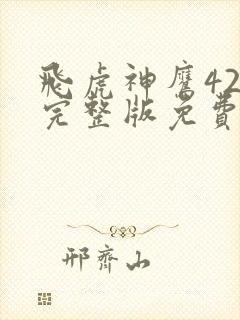 飛虎神鷹42
完整版免費
邢齊山